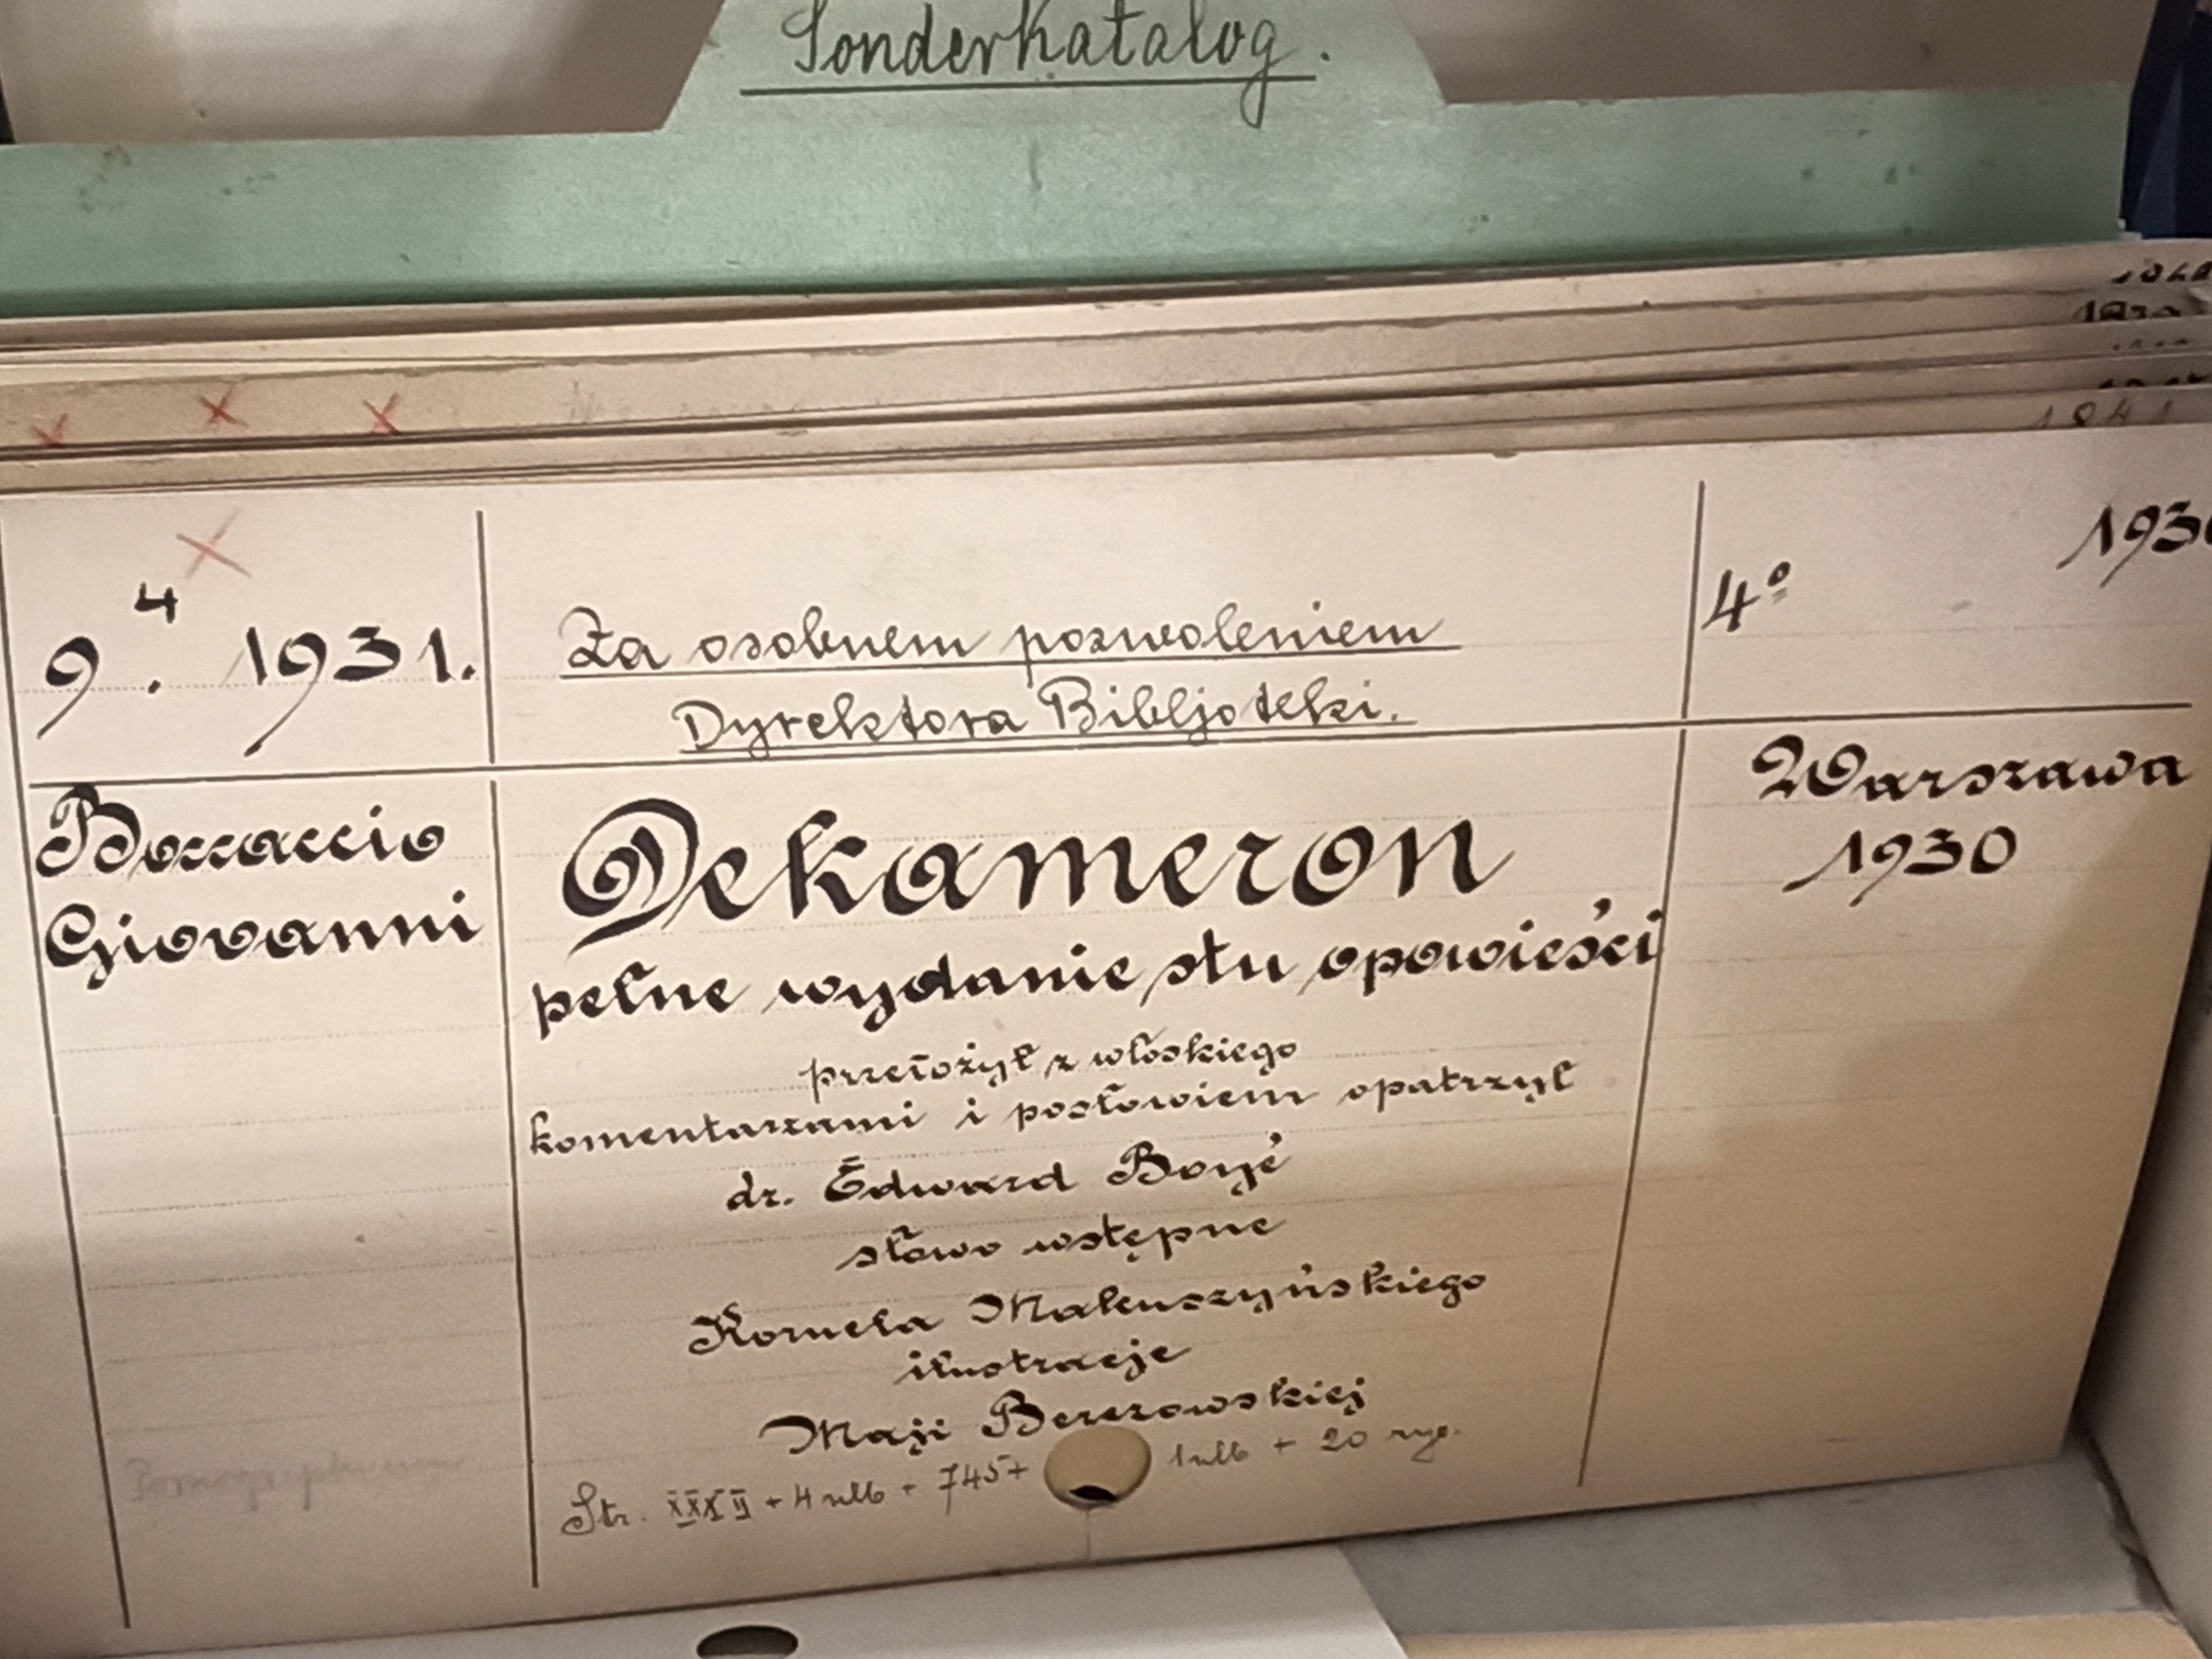 Sonderkatalog.
1941
1930
9. 4 1931.
Za osobnem pozwoleniem
Dyrektora Bibljoteki.
4º
Boccaccio
Giovanni
Dekameron
pełne wydanie stu opowieści
przełożył z włoskiego
komentarzami i posłowiem opatrzył
dr. Edward Boyé
słowo wstępne
Kornela Makuszyńskiego
ilustracje
Maji Berezowskiej
Str. XXXII + 4 nlb + 745 + 1 nlb + 20 ryc.
Warszawa
1930